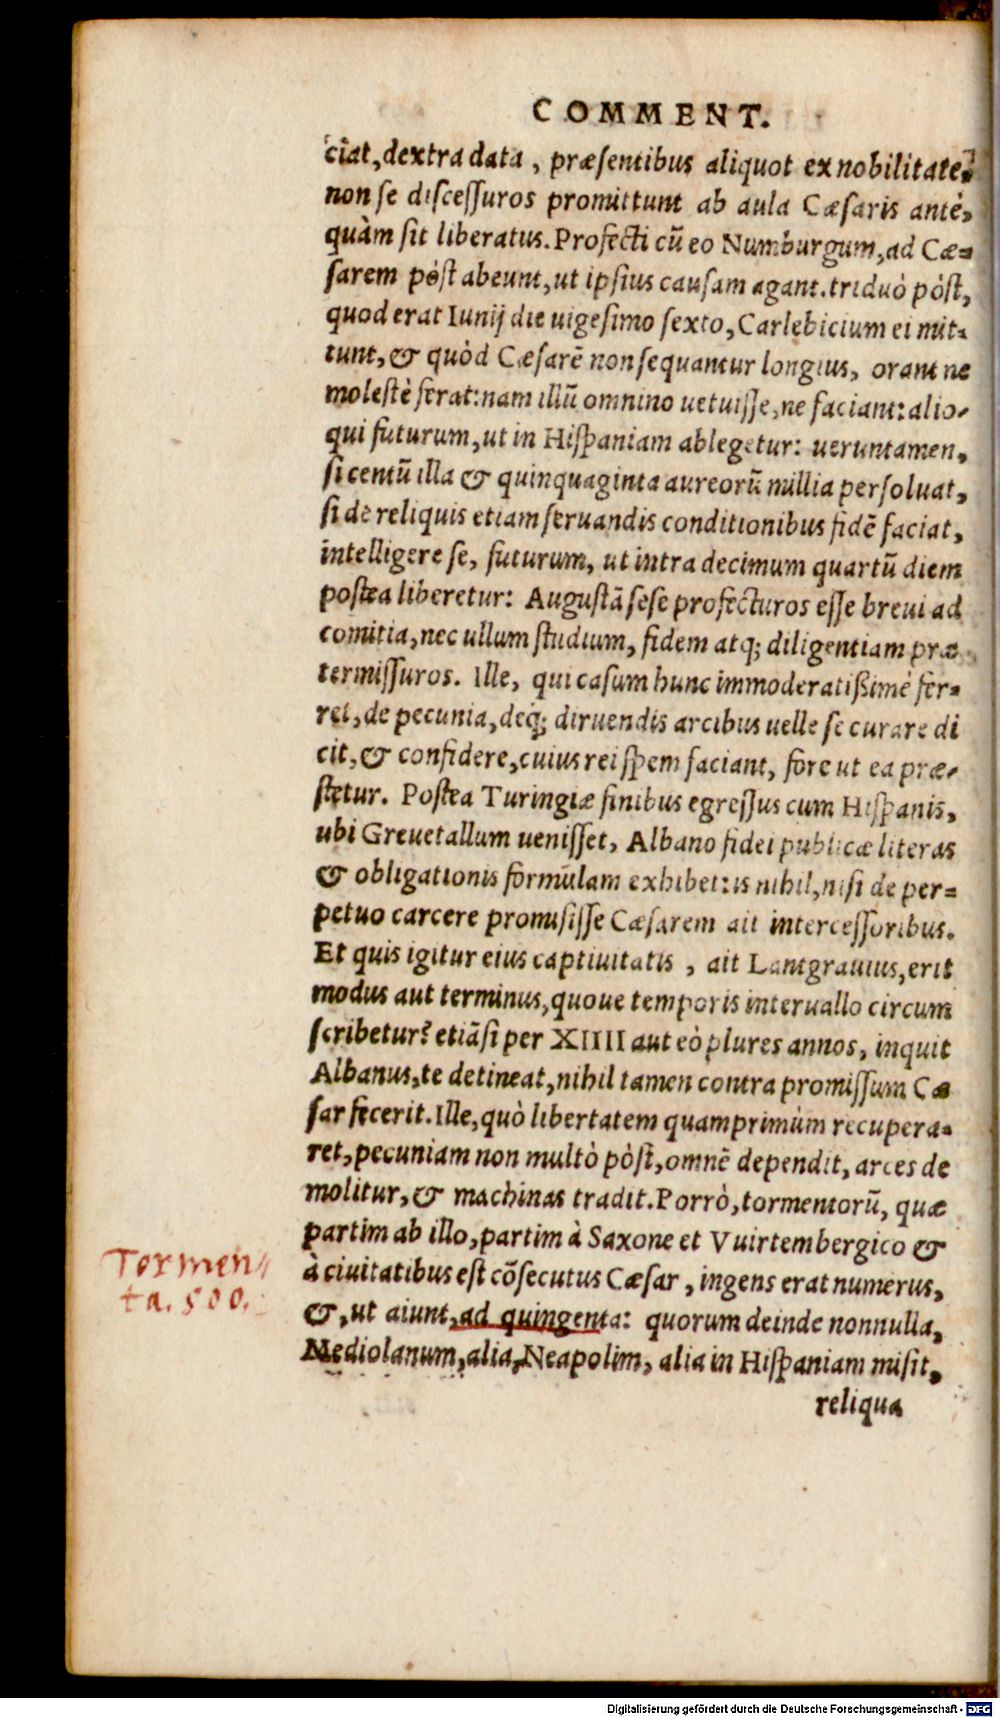 COMMENT.
ciat, dextra data, præsentibus aliquot ex nobilitate,
non se discessuros promittunt ab aula Cæsaris antè,
quàm sit liberatus. Profecti cū eo Numburgum, ad Cæ-
sarem pòst abeunt, ut ipsius causam agant. triduò pòst,
quod erat Iunij die uigesimo sexto, Carlebicium ei mit-
tunt, & quòd Cæsarē non sequantur longius, orant ne
molestè ferat: nam illū omnino uetuisse, ne faciant: alio-
qui futurum, ut in Hispaniam ablegetur: ueruntamen,
si centū illa & quinquaginta aureorū millia persoluat,
si de reliquis etiam seruandis conditionibus fidē faciat,
intelligere se, futurum, ut intra decimum quartū diem
postea liberetur: Augustā sese profecturos esse breui ad
comitia, nec ullum studium, fidem atq; diligentiam præ
termissuros. Ille, qui casum hunc immoderatißimè fer-
ret, de pecunia, deq; diruendis arcibus uelle se curare di
cit, & confidere, cuius rei spem faciant, fore ut ea præ-
stetur. Postea Turingiæ finibus egressus cum Hispanis,
ubi Greuetallum uenisset, Albano fidei publicæ literas
& obligationis formulam exhibet: is nihil, nisi de per-
petuo carcere promisisse Cæsarem ait intercessoribus.
Et quis igitur eius captiuitatis, ait Lantgrauius, erit
modus aut terminus, quoue temporis interuallo circum
scribetur? etiāsi per XIIII aut eò plures annos, inquit
Albanus, te detineat, nihil tamen contra promissum Cæ
sar fecerit. Ille, quò libertatem quamprimùm recupera-
ret, pecuniam non multò pòst, omnē dependit, arces de
molitur, & machinas tradit. Porrò, tormentorū, quæ
partim ab illo, partim à Saxone et Vuirtembergico &
à ciuitatibus est cōsecutus Cæsar, ingens erat numerus,
&, ut aiunt, ad quingenta: quorum deinde nonnulla,
Mediolanum, alia, Neapolim, alia in Hispaniam misit,
reliqua
Tormen//
ta. 500.
Digitalisierung gefördert durch die Deutsche Forschungsgemeinschaft - DFG